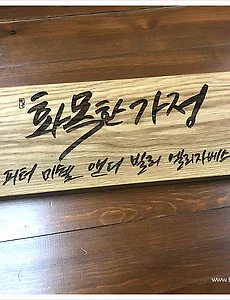 화목한 가정
피터 미셸 앤디 빌리 엘리자베스